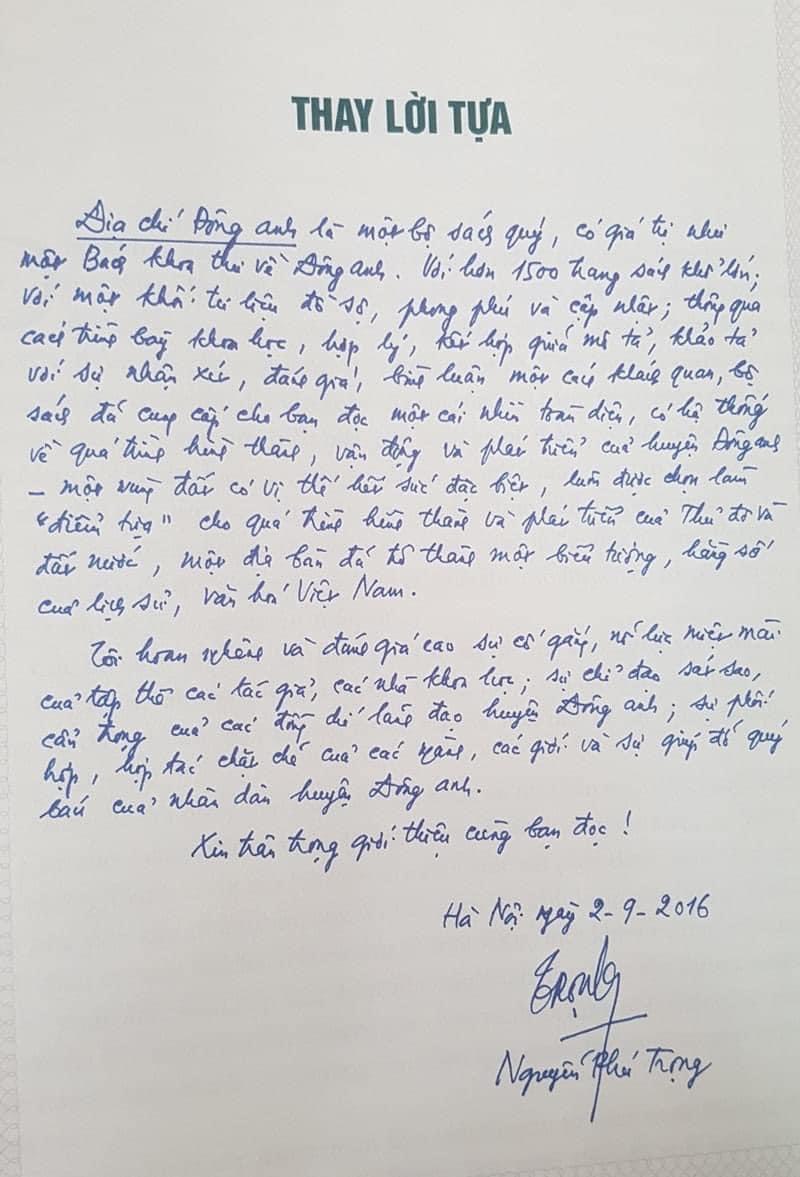 THAY LỜI TỰA
Địa chí Đông Anh là một bộ sách quý, có giá trị như
một Bách khoa thư về Đông Anh. Với hơn 1500 trang sách khổ lớn;
với một khối tư liệu đồ sộ, phong phú và cập nhật; thông qua
cách trình bày khoa học, hợp lý, kết hợp giữa mô tả, khảo tả
với sự nhận xét, đánh giá, bình luận một cách khách quan, bộ
sách đã cung cấp cho bạn đọc một cái nhìn toàn diện, có hệ thống
về quá trình hình thành, vận động và phát triển của huyện Đông Anh
- một vùng đất có vị thế hết sức đặc biệt, luôn được chọn làm
"điểm tựa" cho quá trình hình thành và phát triển của Thủ đô và
đất nước, một địa bàn đã trở thành một biểu tượng, hằng số
của lịch sử, văn hoá Việt Nam.
Tôi hoan nghênh và đánh giá cao sự cố gắng, nỗ lực miệt mài
của tập thể các tác giả, các nhà khoa học; sự chỉ đạo sát sao,
cẩn trọng của các đồng chí lãnh đạo huyện Đông Anh; sự phối
hợp, hợp tác chặt chẽ của các ngành, các giới và sự giúp đỡ quý
báu của nhân dân huyện Đông Anh.
Xin trân trọng giới thiệu cùng bạn đọc!
Hà Nội ngày 2-9-2016
Trọng
Nguyễn Phú Trọng